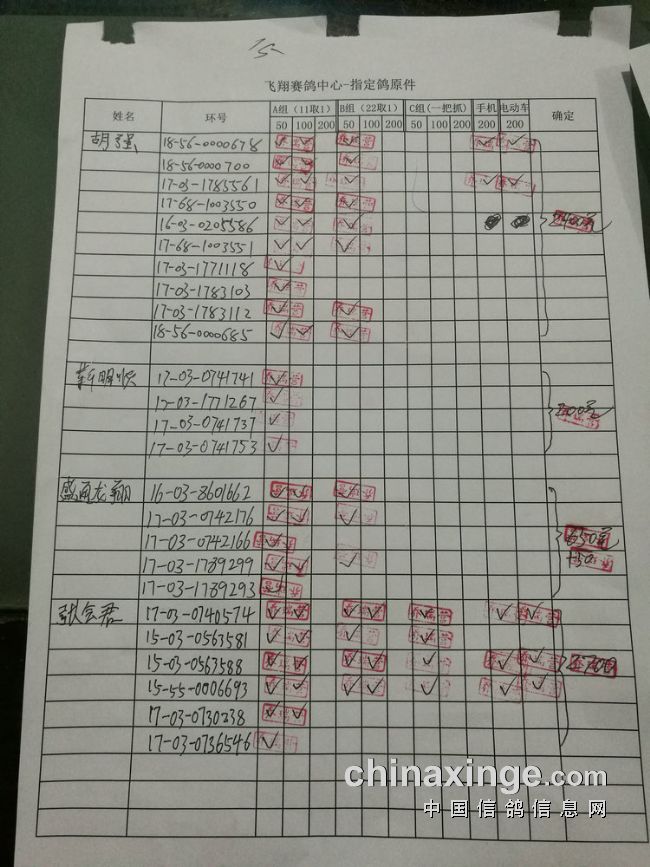 15
飞翔赛鸽中心-指定鸽原件
姓名 环号 A组（11取1） B组（22取1） C组(一把抓) 手机 电动车 确定
50 100 200 50 100 200 50 100 200 200 200
胡强 18-56-0000678 ✓ ✓ ✓ ✓ ✓
18-56-0000700 ✓ ✓ ✓
17-03-1783561 ✓ ✓ ✓ ✓ ✓
17-68-1003550 ✓ ✓ ✓
16-03-0205586 ✓ ✓ ✓
17-68-1003551 ✓ ✓ ✓
17-03-1771118 ✓
17-03-1783103 ✓
17-03-1783112 ✓ ✓
18-56-0000685 ✓ ✓ ✓
靳明顺 17-03-0741741 ✓
17-03-1771267 ✓
17-03-0741737 ✓
17-03-0741753 ✓
200元
盛通龙翔 16-03-8601662 ✓ ✓ ✓
17-03-0742176 ✓ ✓ ✓
17-03-0742166 ✓
650元
17-03-1789299 ✓ ✓ ✓
17-03-1789293 ✓
张会君 17-03-0740574 ✓ ✓ ✓ ✓ ✓ ✓ ✓
15-03-0563581 ✓ ✓ ✓ ✓
15-03-0563588 ✓ ✓ ✓ ✓ ✓ ✓ ✓
15-55-0006693 ✓ ✓ ✓ ✓ ✓ ✓ ✓
17-03-0730238 ✓ ✓
17-03-0736546 ✓
chinaxinge.com
中国信鸽信息网